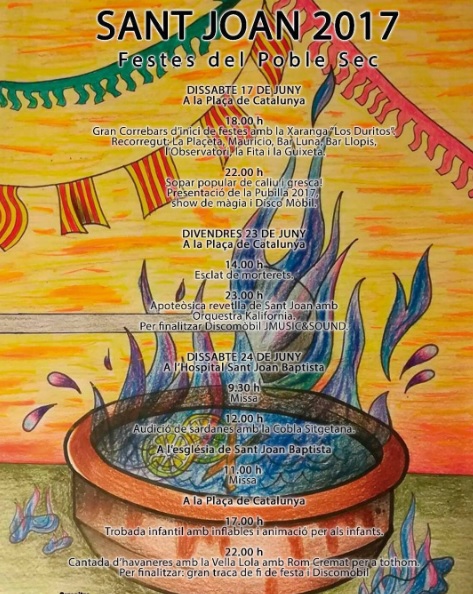 SANT JOAN 2017
Festes del Poble Sec
DISSABTE 17 DE JUNY
A la Plaça de Catalunya
18.00 h
Gran Correbars d'inici de festes amb la Xaranga "Los Duritos".
Recorregut: La Placeta, Mauricio, Bar Luna, Bar Llopis,
l'Observatori, la Fita i la Guixeta.
22.00 h
Sopar popular de caliu i gresca!
Presentació de la Pubilla 2017,
show de màgia i Disco Mòbil.
DIVENDRES 23 DE JUNY
A la Plaça de Catalunya
14.00 h
Esclat de morterets.
23.00 h
Apoteòsica revetlla de Sant Joan amb
Orquestra Kalifornia.
Per finalitzar Discomòbil JMUSIC&SOUND.
DISSABTE 24 DE JUNY
A l'Hospital Sant Joan Baptista
9:30 h
Missa
12.00 h
Audició de sardanes amb la Cobla Sitgetana.
A l'església de Sant Joan Baptista
11.00 h
Missa
A la Plaça de Catalunya
17.00 h
Trobada infantil amb inflables i animació per als infants.
22.00 h
Cantada d'havaneres amb la Vella Lola amb Rom Cremat per a tothom.
Per finalitzar: gran traca de fi de festa i Discomòbil